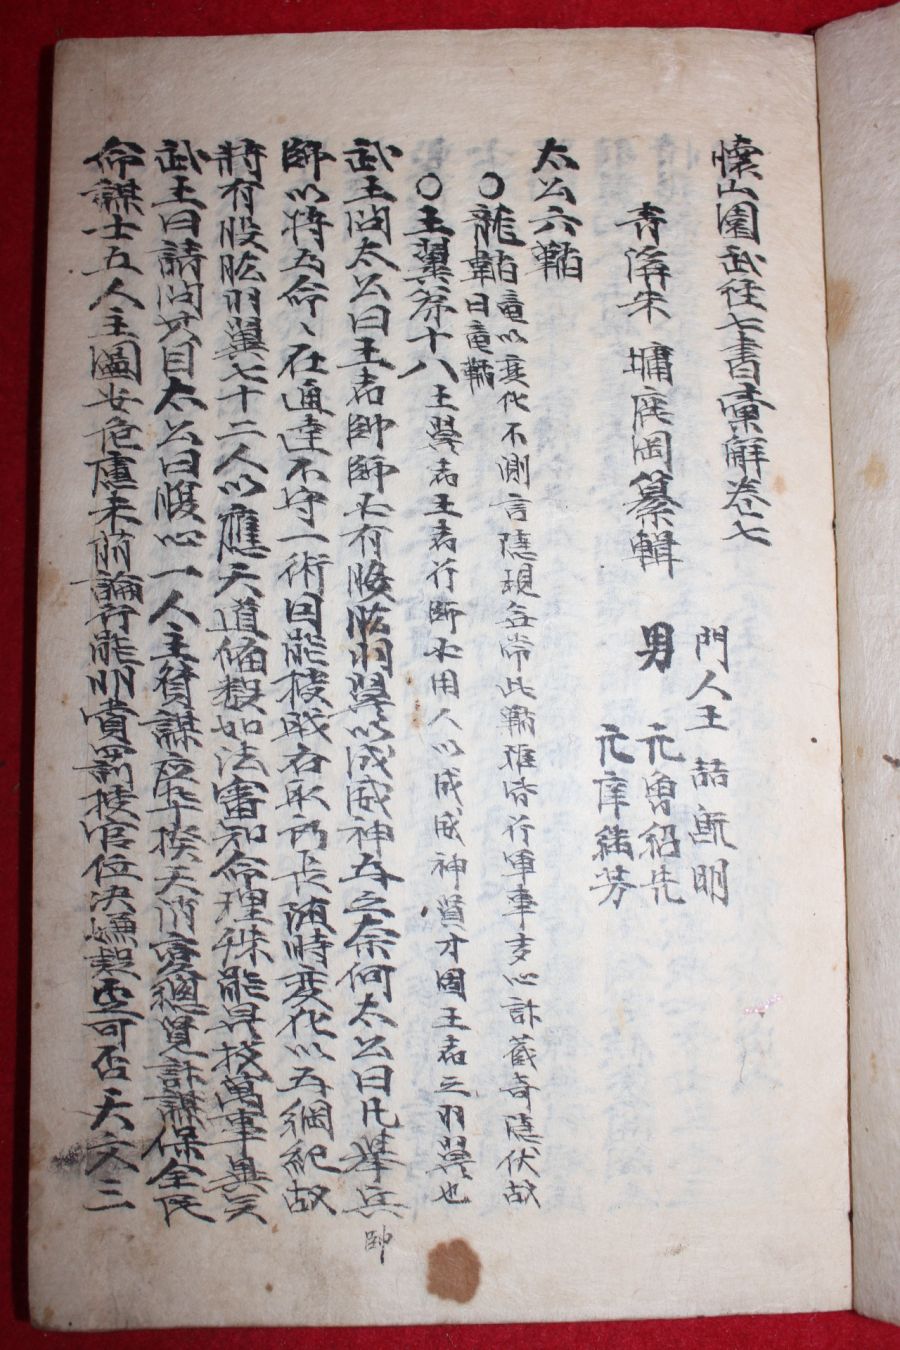 懐山園武経七書彙解卷七
青溪朱墉庭岡纂輯
門人王喆㫤明
男
元勇紹先
元庠緒芳
太公六韜
○龍韜竜以変化不測言隠現無常此韜雖皆行軍事多心計蔵奇隠伏故
曰竜韜
○王翼第十八王翼者王者行師必用人以成威神賢才固王者之羽翼也
武王問太公曰王者帥師必有股肱羽翼以成威神為之奈何太公曰凡挙兵
師以将為命〻在通達不守一術因能授職各取所長随時変化以為綱紀故
将有股肱羽翼七十二人以應天道俻数如法審知命理殊能異技萬事畢矣
武王曰請問其目太公曰腹心一人主賛謀應卒揆天消変揔覧計謀保全民
命謀士五人主圖安危慮未萌論行能明賞罰授官位决嫌疑定可否天文三
帥